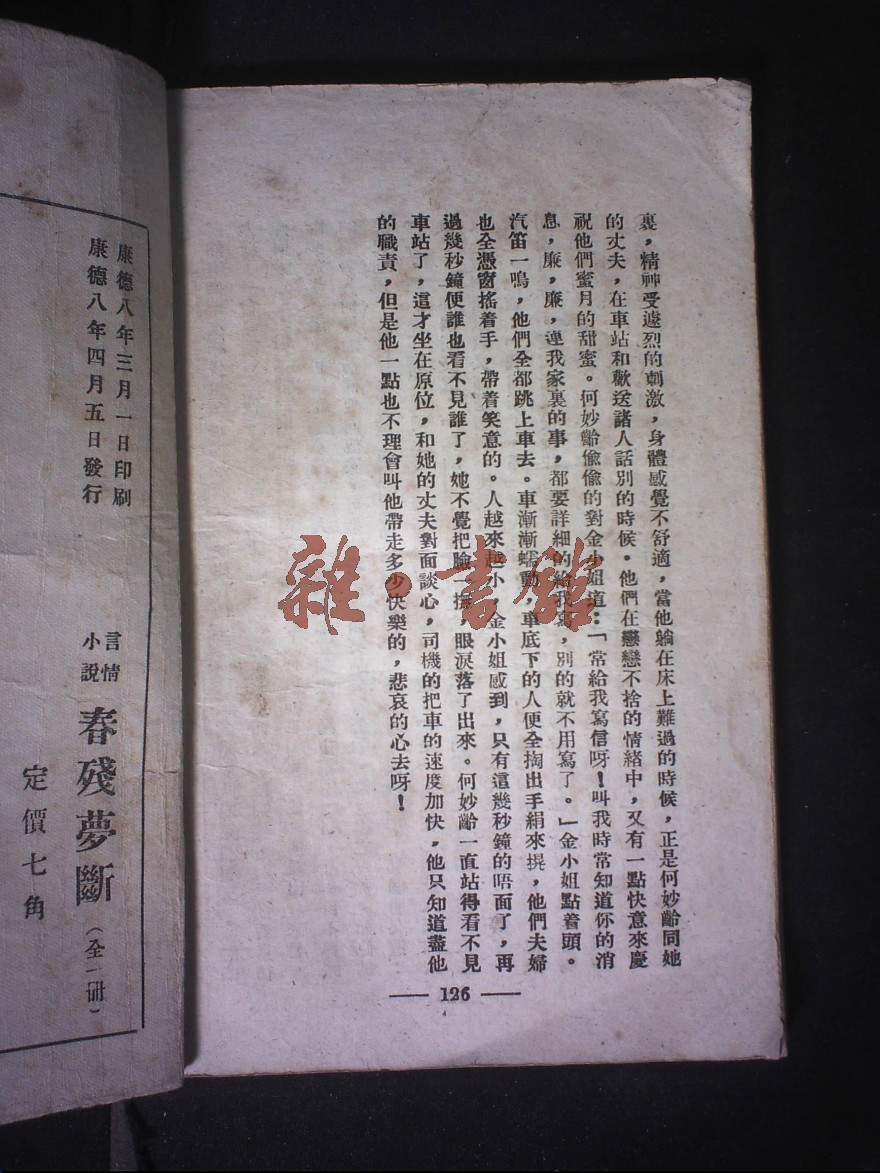 裏，精神受遽烈的刺激，身體感覺不舒適，當他躺在床上難過的時候，正是何妙齡同她
的丈夫，在車站和歡送諸人話別的時候。他們在戀戀不捨的情緒中，又有一點快意來慶
祝他們蜜月的甜蜜。何妙齡偸偸的對金小姐道：「常給我寫信呀！叫我時常知道你的消
息，廉，廉，連我家裏的事，都要詳細的給我寫，別的就不用寫了。」金小姐點着頭。
汽笛一鳴，他們全都跳上車去。車漸漸蠕動，車底下的人便全掏出手絹來撰，他們夫婦
也全憑窗搖着手，帶着笑意的。人越來越小，金小姐感到，只有這幾秒鐘的晤面了，再
過幾秒鐘便誰也看不見誰了，她不覺把臉一撫，眼淚落了出來。何妙齡一直站得看不見
車站了，這才坐在原位，和她的丈夫對面談心，司機的把車的速度加快，他只知道盡他
的職責，但是他一點也不理會叫他帶走多少快樂的，悲哀的心去呀！
— 126 —
康德八年三月一日印刷
康德八年四月五日發行
言情小說 春殘夢斷（全一册）
定價七角
雜·書館